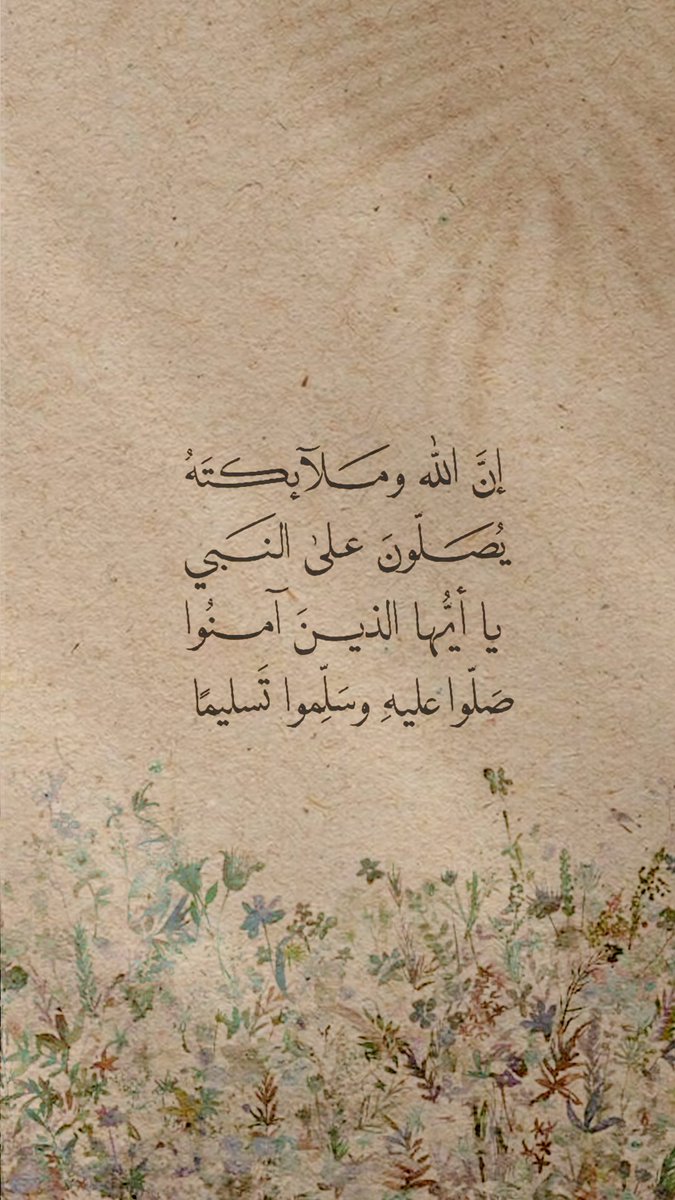 إنَّ الله ومَلآئكتَهُ
يُصَلّونَ علىٰ النَبي
يا أيُّها الذينَ آمنُوا
صَلّوا عليهِ وسَلِّموا تَسليمًا